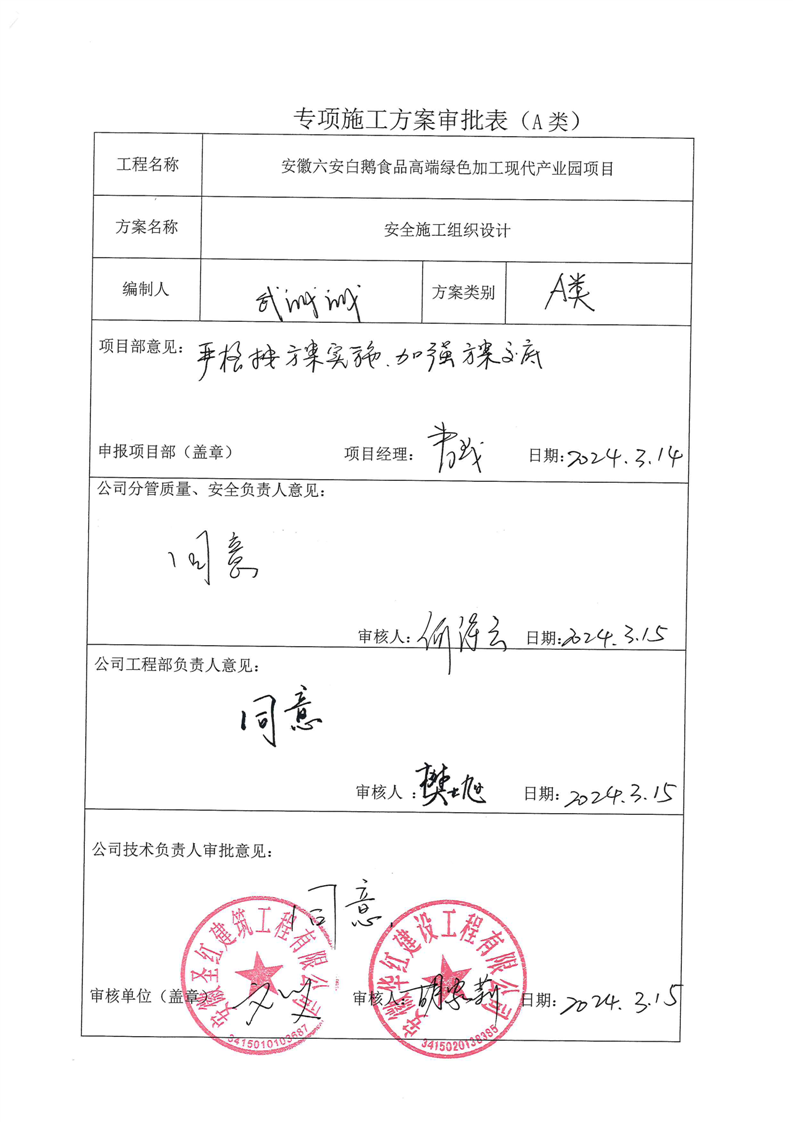 专项施工方案审批表（A类）
工程名称 安徽六安白鹅食品高端绿色加工现代产业园项目
方案名称 安全施工组织设计
编制人 武诚诚 方案类别 A类
项目部意见：严格按方案实施.加强方案交底
申报项目部（盖章） 项目经理： 日期:2024.3.14
公司分管质量、安全负责人意见：
同意
审核人：何泽云 日期:2024.3.15
公司工程部负责人意见：
同意
审核人：樊士旭 日期:2024.3.15
公司技术负责人审批意见：
同意.
安徽圣红建筑工程有限公司
安徽华红建设工程有限公司
审核单位（盖章） 审核人： 日期:2024.3.15
3415010103687
3415020138385